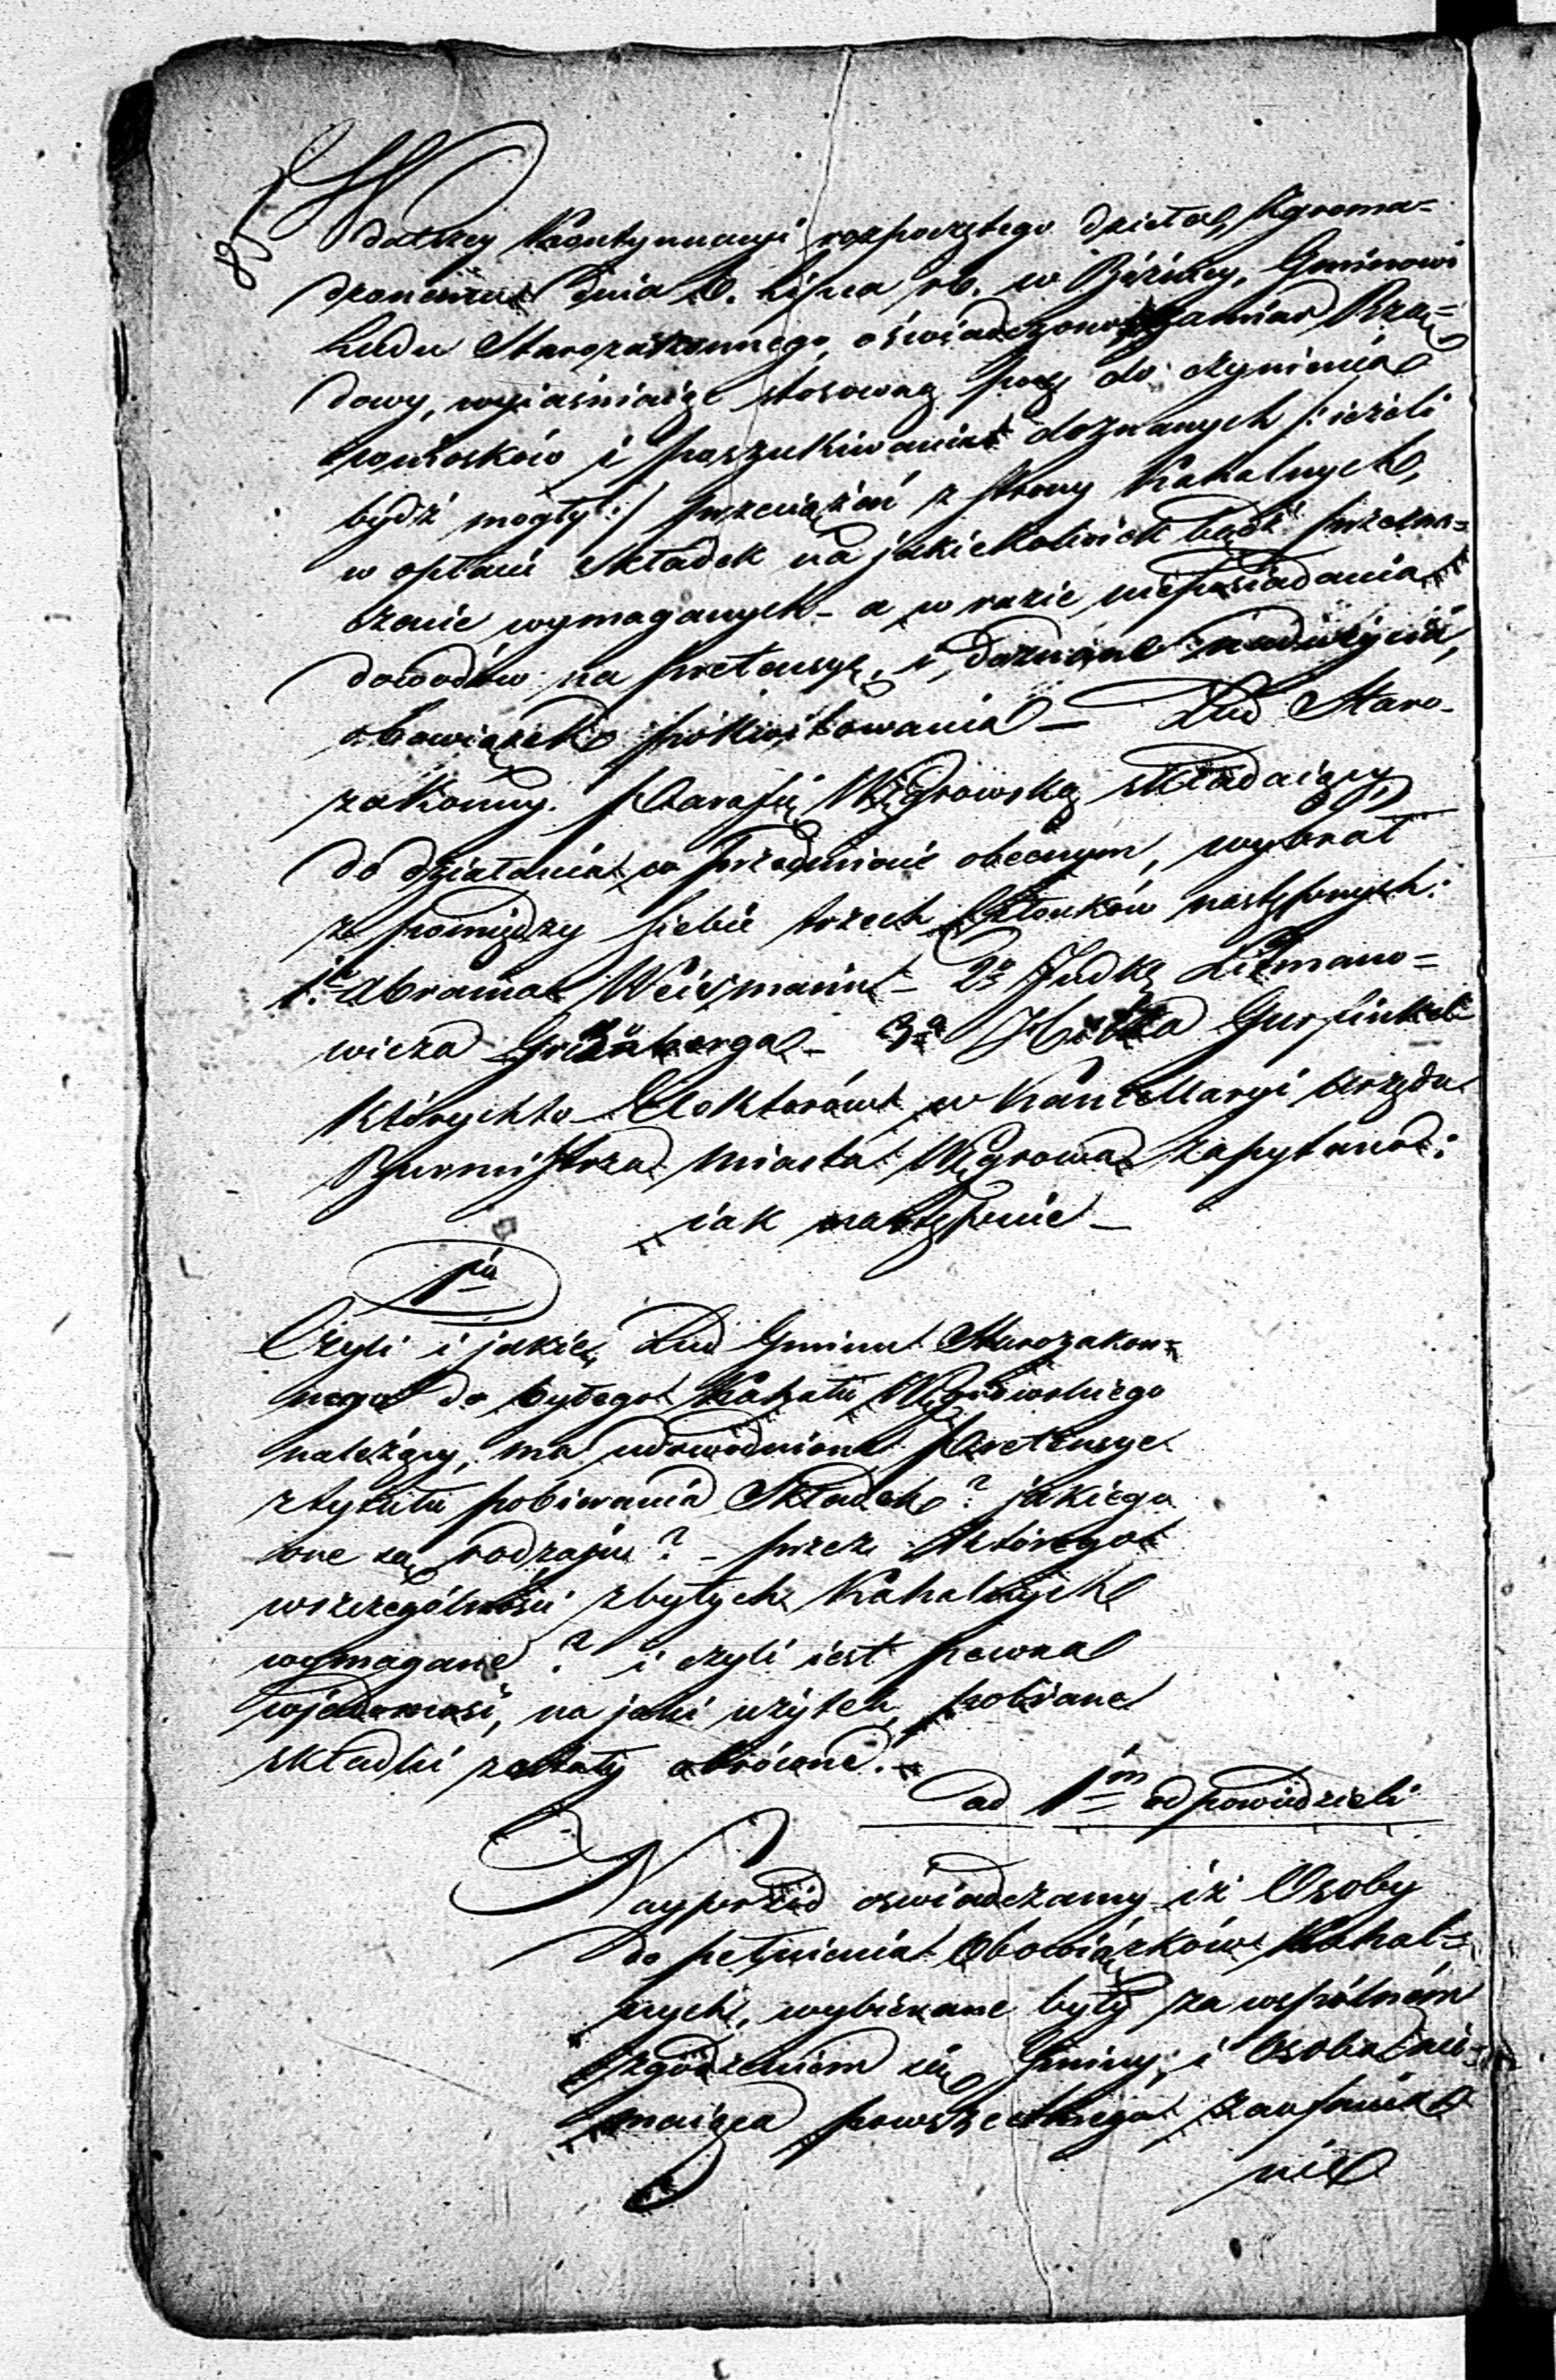 85
W dalszey Kontynuacyi rozpoczętego dzieła, Zgroma=
dzonemu dnia 6. Lipca rb. w Bóżnicy, Gminowi
Ludu Starozakonnego, oświadczono Zamiar Rzą=
dowy, wyiaśniaiąc stosowną porę do czynienia
wniosków i poszukiwania doznanych /: ieżeli
bydź mogły :/ przeciążeń z strony Kahalnych,
w opłacie składek na jakiekolwiek bądź przezna=
czenie wymaganych - a w razie nieposiadania
dowodów na pretensye, i doznane nadużycia,
obowiązek pokwitowania - Lud Staro-
zakonny Parafię Węgrowską składaiący,
do działania w przedmiocie obecnym, wybrał
z pomiędzy siebie trzech Członków następnych:
1o Abrama Weismann - 2o Judkę Litmano=
wicza Grünberga - 3o Gurfinkel
których to Elektorów w Kancellaryi urzędu
Burmistrza Miasta Węgrowa zapytano:
iak następuie -
1a
Czyli i jakie, Lud Gminu Starozakon=
nego do byłego Kahału Węgrowskiego
należący, ma udowodnione Pretensye
z tytułu pobierania Składek? jakiego
one są rodzaju? - przez którego
wszczególności z byłych Kahalnych
wymagane? i czyli iest pewna
wiadomość, na jaki użytek, pobrane
składki zostały obrócone. -
ad 1m odpowiedzieli
Nayprzód oświadczamy iż Osoby
do pełnienia Obowiązków Kahal=
nych, wybierane były za wspólném
zgodzeniem się Gminy, i Osoba nie=
maiąca powszechnego zaufania
nie